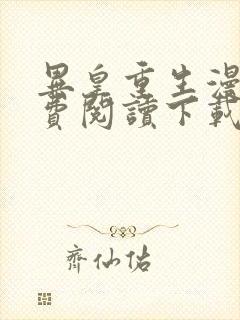 異皇重生漫
費閱讀下載
齊仙佑